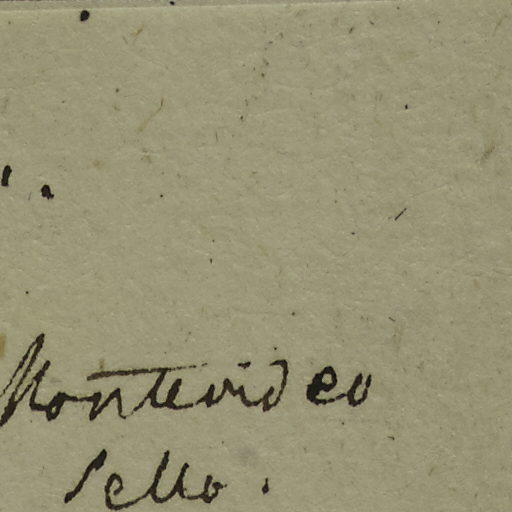 Montevideo
Sello.